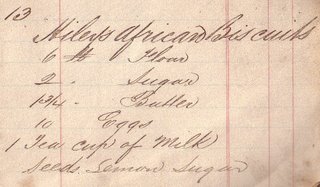 13
Hileys African Biscuits
6 lb Flour
2 " Sugar
1 3/4 " Butter
10 Eggs
1 Tea cup of Milk
Seeds. Lemon Sugar